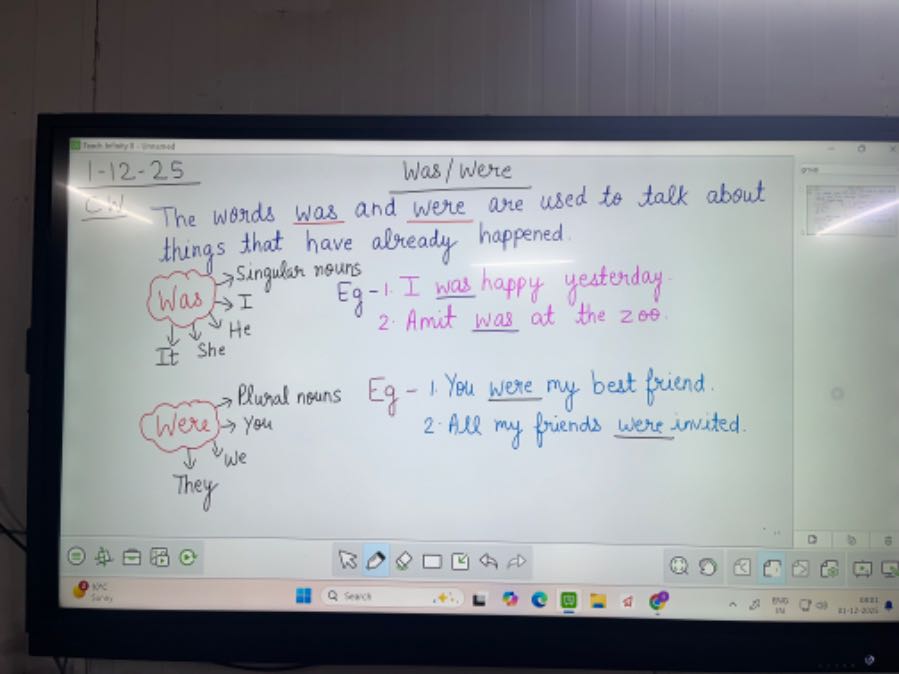 Teach Infinity 8 - Unnamed
1-12-25
Was/Were
CW
The words was and were are used to talk about
things that have already happened.
Was
Singular nouns
I
He
She
It
Eg - 1. I was happy yesterday.
2. Amit was at the zoo.
Were
Plural nouns
You
We
They
Eg - 1. You were my best friend.
2. All my friends were invited.
Search
ENG
IN
01-12-2025